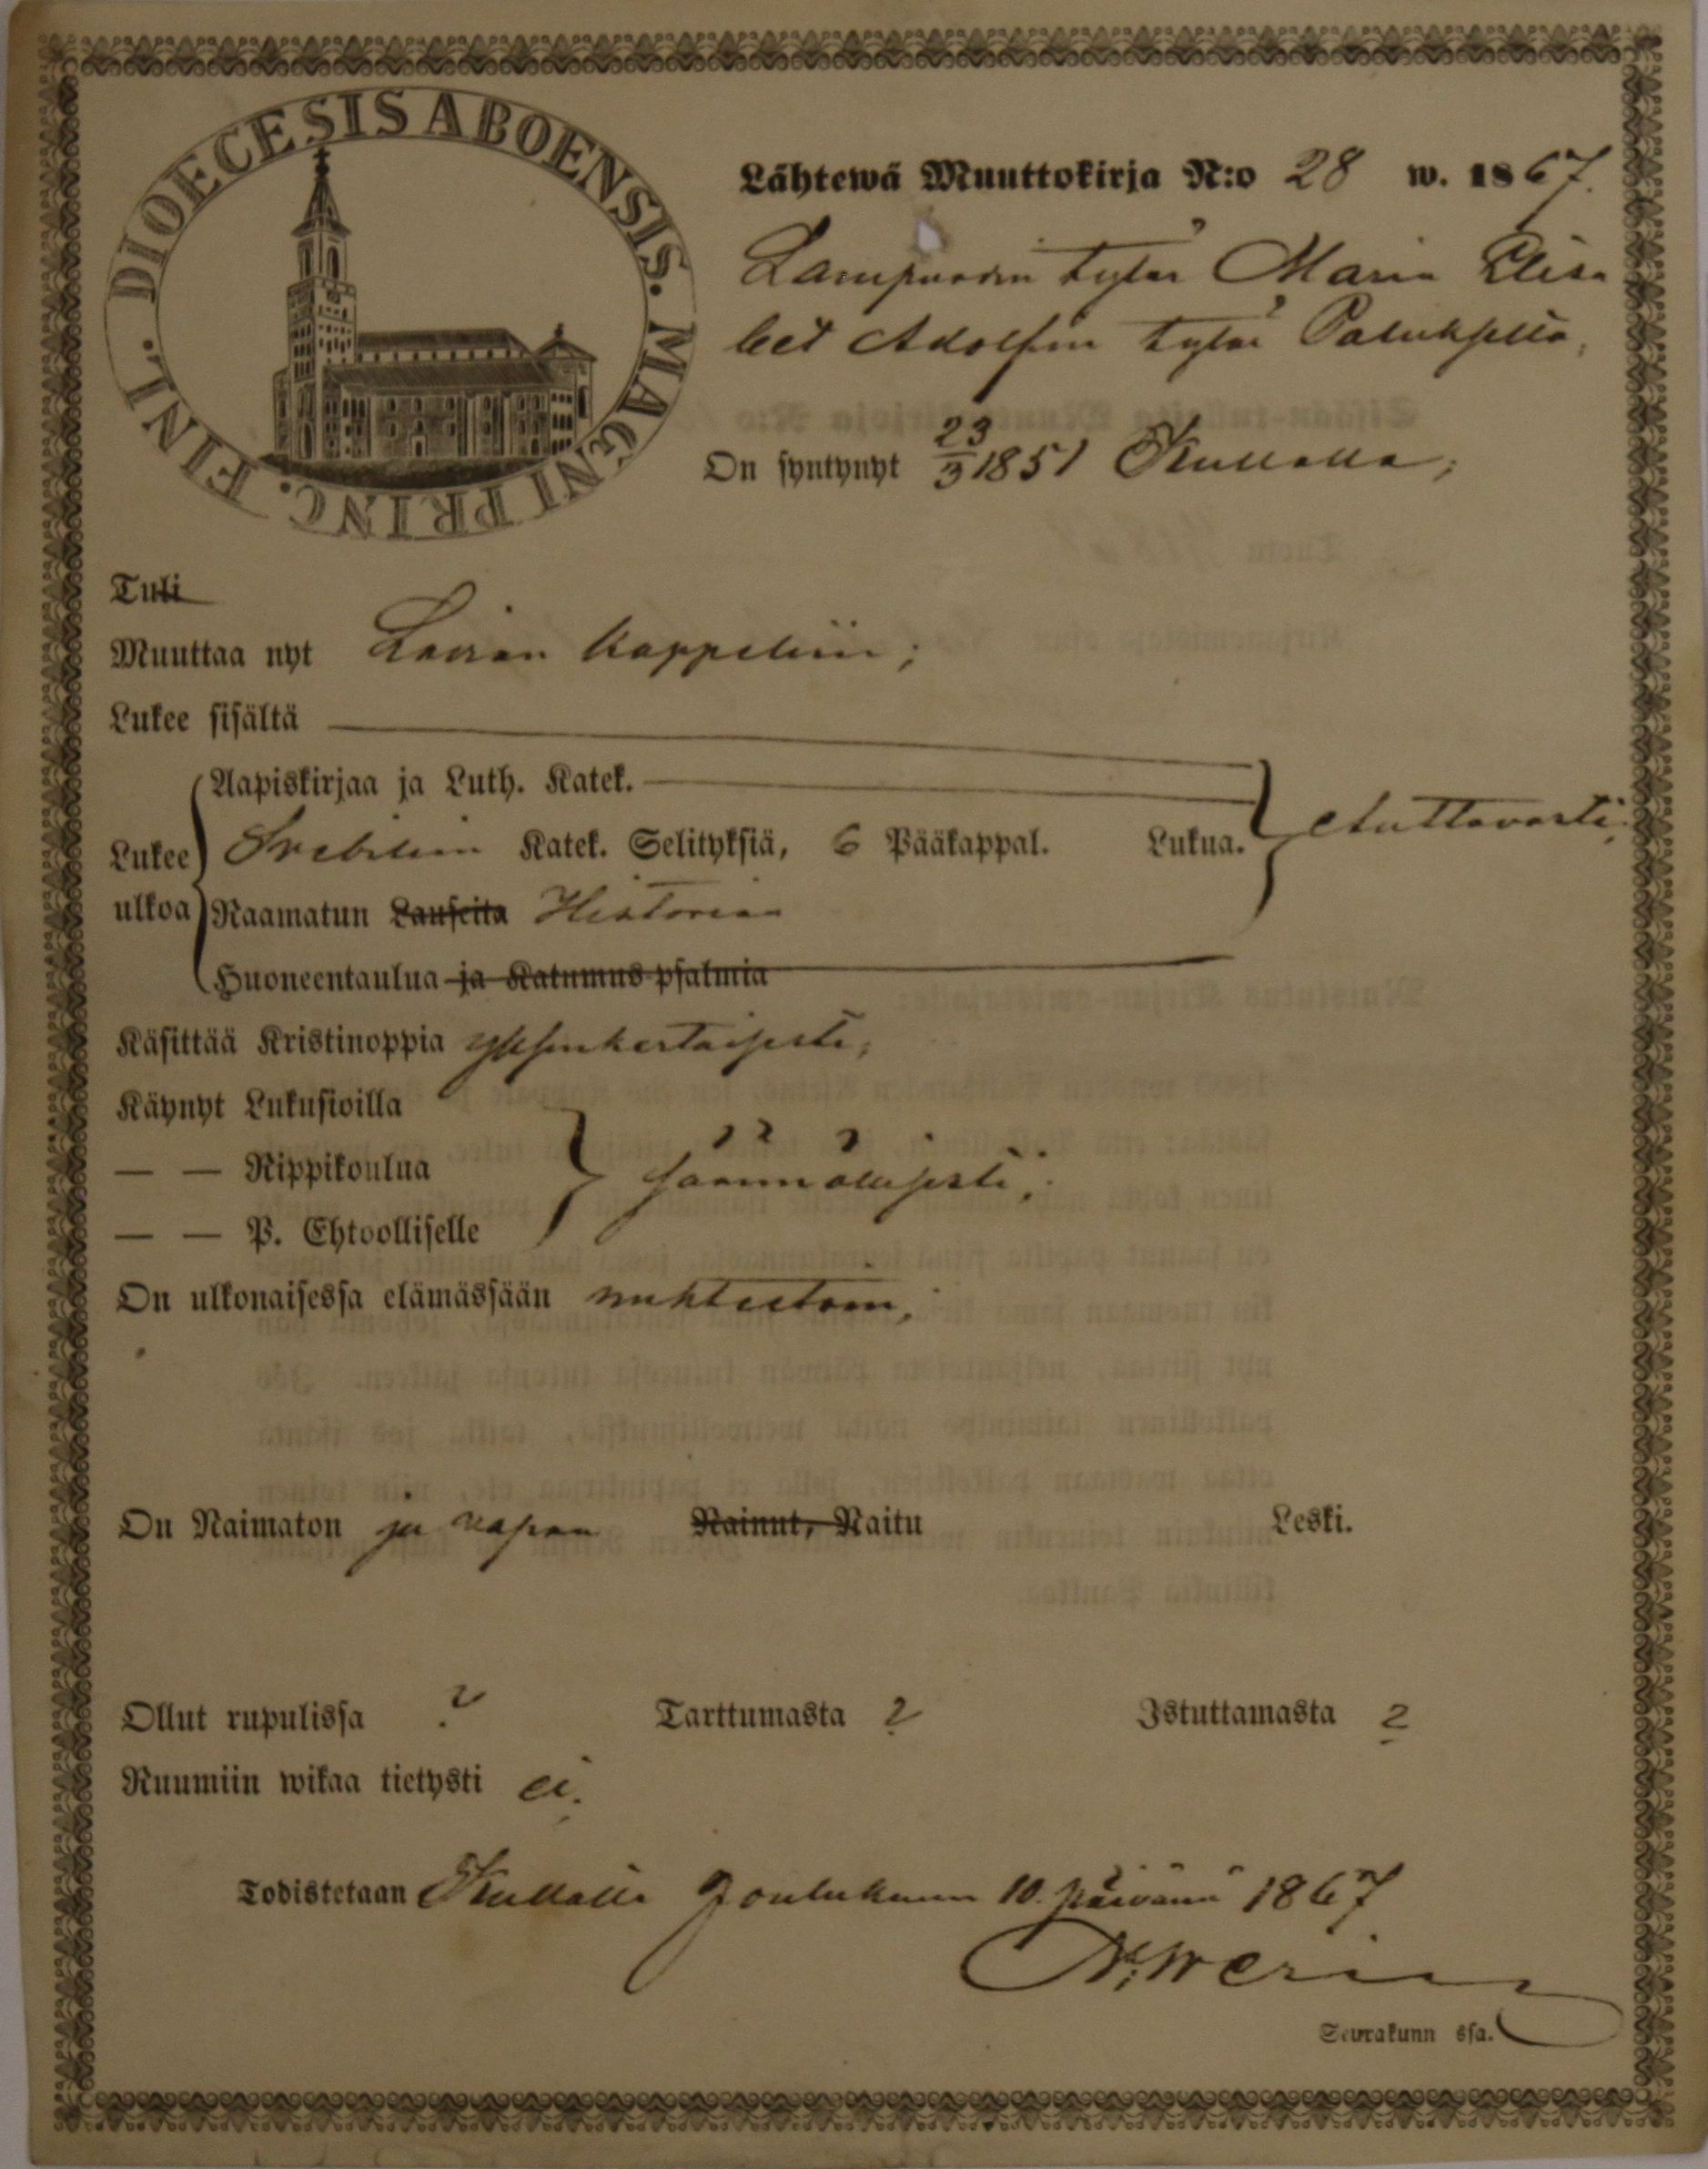 DIOECESIS ABOENSIS. MAGNI PRINC. FINL.
Lähtewä Muuttokirja N:o 28 w. 1867.
Lampuodin tytär Maria Elisa
bet Adolfin tytär Paluksella,
On syntynyt 23/3 1851 Kullalla;
Tuli
Muuttaa nyt Lavian kappeliin;
Lukee sisältä
Aapiskirjaa ja Luth. Katek.
Lukee Svebiliin Katek. Selityksiä, 6 Pääkappal. Lukua. Auttavasti;
ulkoa Raamatun Lauseita Historiaa
Huoneentaulua ja Katumus-psalmia
Käsittää Kristinoppia yksinkertaisesti;
Käynyt Lukusioilla
— — Rippikoulua säännöllisesti;
— — P. Ehtoolliselle
On ulkonaisessa elämässään nuhteetoin;
On Naimaton ja vapaa Nainut, Naitu Leski.
Ollut rupulissa ? Tarttumasta ? Istuttamasta ?
Ruumiin wikaa tietysti ei.
Todistetaan Kullalla Joulukuun 10. päivänä 1867
Seurakunn ssa.